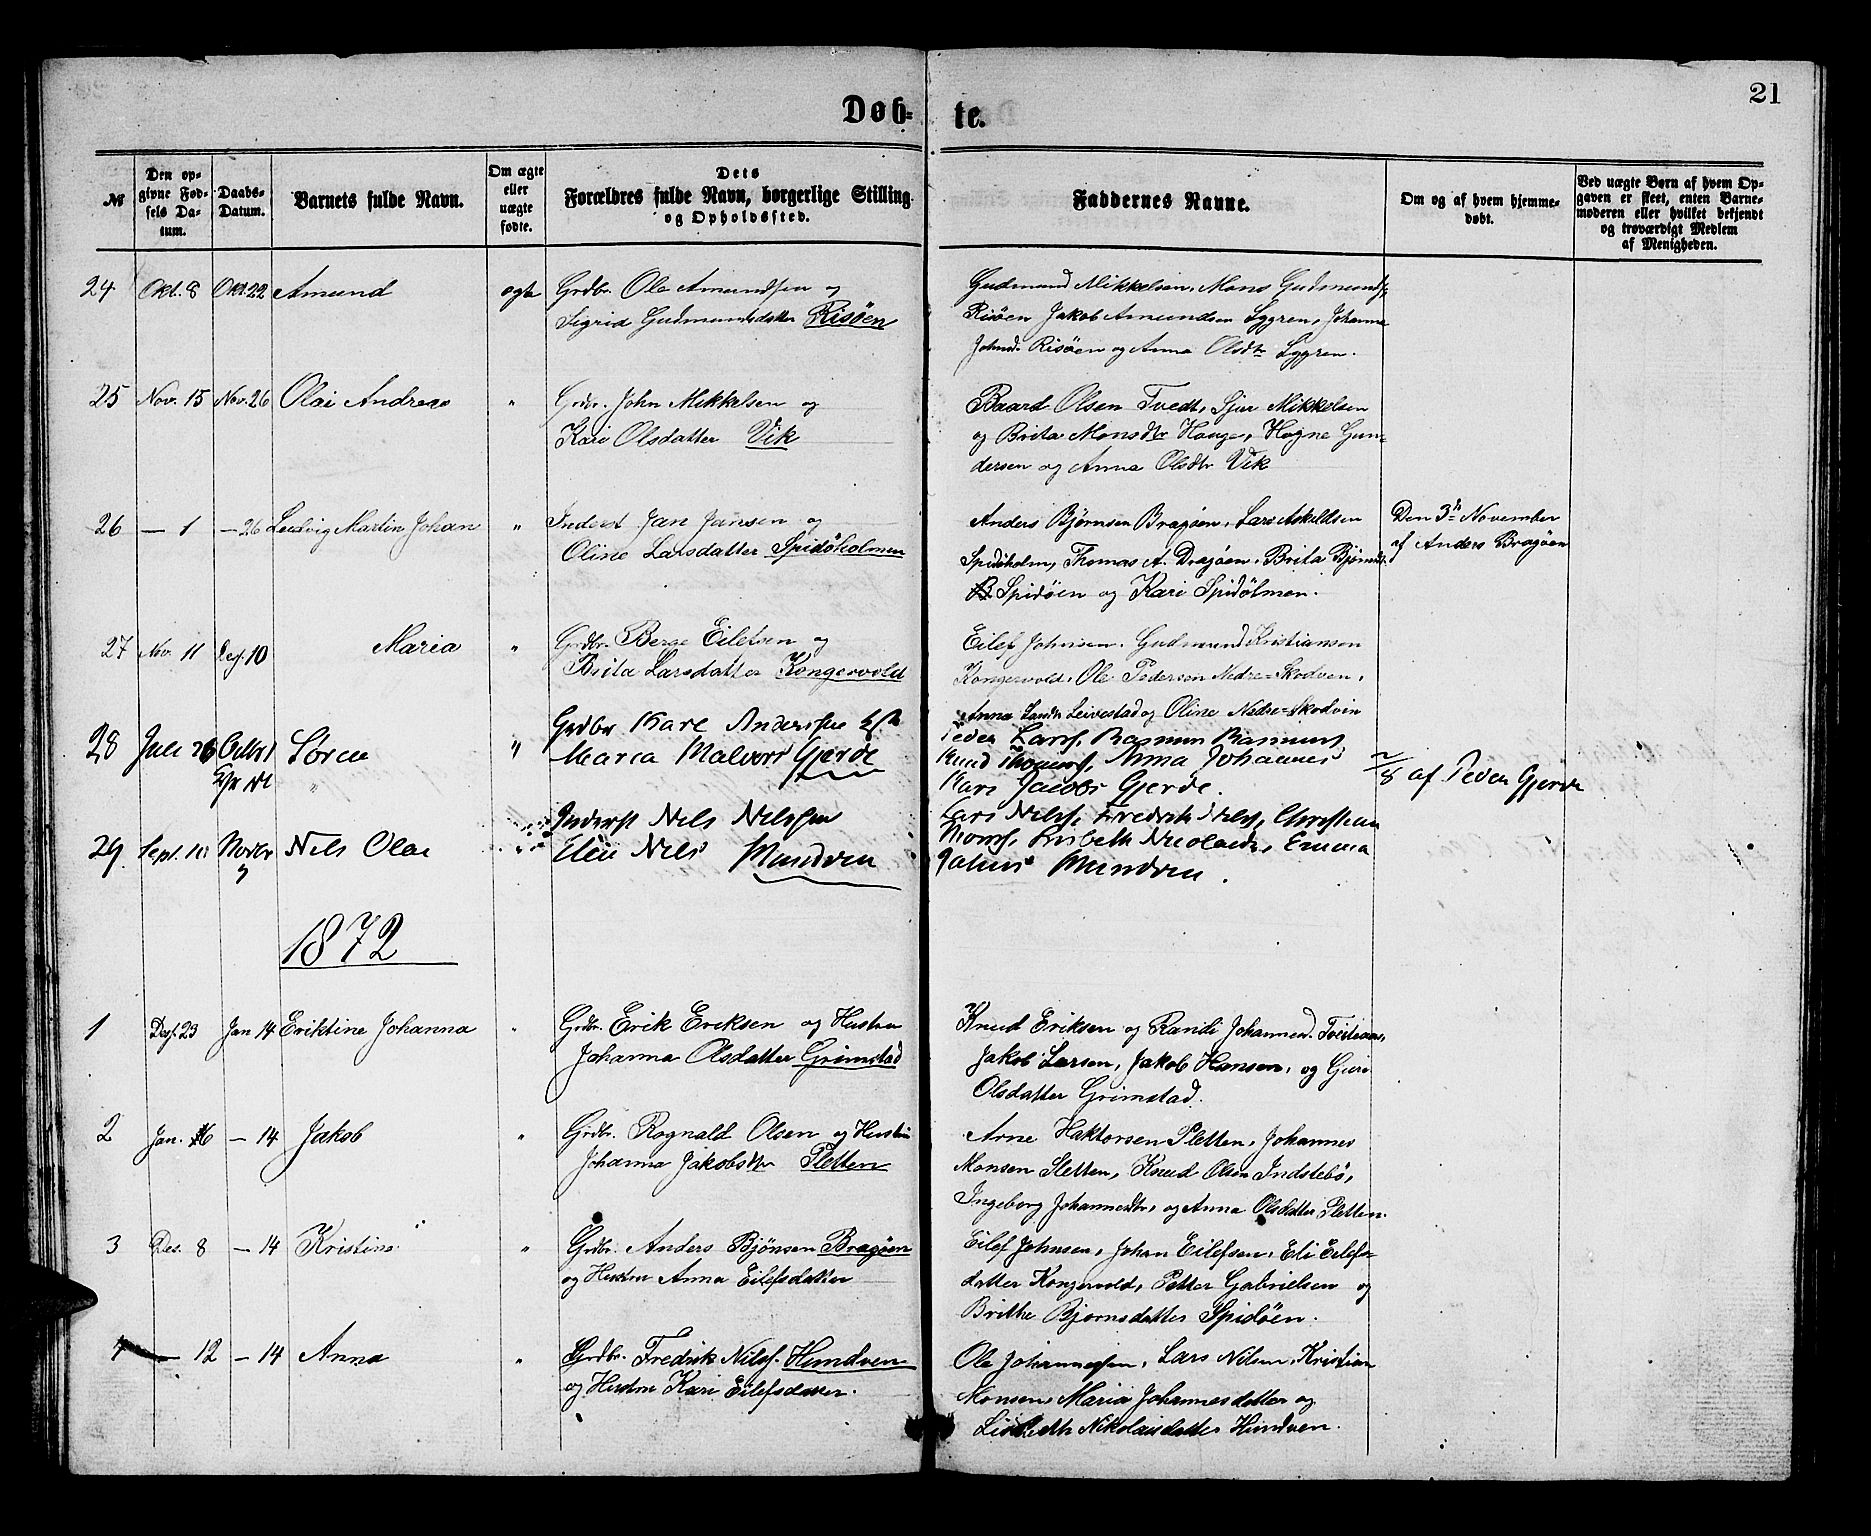 21
Døb- te.
№
Den opgivne Fødsels Datum.
Daabs-Datum.
Barnets fulde Navn.
Om ægte eller uægte fødte.
Dets Forældres fulde Navn, borgerlige Stilling og Opholdssted.
Faddernes Navne.
Om og af hvem hjemmedøbt.
Ved uægte Børn af hvem Opgaven er skeet, enten Barnemoderen eller hvilket bekjendt og troværdigt Medlem af Menigheden.
24 Okt. 8 Okt. 22 Amund ægte Grdbr. Ole Amundsen og
Sigrid Gudmundsdatter Risöen
Gudmund Mikkelsen, Mons Gudmunds.
Risöen Jakob Amundsen Lygren, Johanna
Johnsd. Risöen og Anna Olsdtr Lygren.
25 Nov. 15 Nov. 26 Olai Andreas " Grdbr. John Mikkelsen og
Kari Olsdatter Vik
Baard Olsen Tvedt, Sjur Mikkelsen
og Brita Monsdtr Hauge, Hogne Gun-
dersen og Anna Olsdtr Vik
26 — 1 — 26 Ludvig Martin Johan " Inderst Jan Jansen og
Oline Larsdatter Spidöholmen
Anders Bjørnsen Bragöen, Lars Askildsen
Spidöholm, Thomas A. Dragöen, Brita Bjørnsd.
Spidöen og Kari Spidölmen.
Den 3de November
af Anders Bragöen
27 Nov. 11 Des. 10 Maria " Grdbr. Berge Eilefsen og
Brita Larsdatter Kongsvold
Eilef Johnsen, Gudmund Kristiansen
Kongsvold, Ole Pedersen Nedre=Skodven,
Anna Leivestad og Oline Nedre=Skodvin
28 Juli 26 Octbr 1 Søren " Grdbr Kare Andersen
Maria Malvors Gjerde
Peder Larss, Rasmus Rasmuss
Knud Thomass, Anna Johannes
Kari Jacobs Gjerde.
2/8 af Peder Gjerde
29 Sept. Novbr Nils Olai Inderst Nils Nilssen
Elie Nils Mundven
Lars Nilss, Fredrik Nilss, Christian
Monss, Lisbeth Nicolaid, Emma
Mundven.
1872
1 Des. 23 Jan 14 Eriktine Johanna " Grdbr. Erik Eriksen og Hustru
Johanna Olsdatter Grimstad
Knud Eriksen og Randi Johannesd. Tveiteraas,
Jakob Larsen, Jakob Hansen, og Guri
Olsdatter Grimstad.
2 Jan. 6 — 14 Jakob " Grdbr. Rognald Olsen og Hustru
Johanna Jakobsdtr Sletten
Arne Haktorsen Sletten, Johannes
Monsen Sletten, Knud Olsen Indstebö,
Ingeborg Johannesdtr, og Anna Olsdatter Sletten.
3 Des. 8 — 14 Kristine " Grdbr. Anders Bjönsen Bragöen
og Hustru Anna Eilefsdatter
Eilef Johnsen, Johan Eilefsen, Eli Eilefs-
datter Kongsvold, Petter Gabrielsen og
Brithe Bjornsdatter Spidöen.
4 — 12 — 14 Anna " Grdbr. Fredrik Nilss. Hundven
og Hustru Kari Eilefsdatter.
Ole Johannessen, Lars Nilsen, Kristian
Monsen, Maria Johannesdatter og
Lisbeth Nikolaisdatter Hundven.